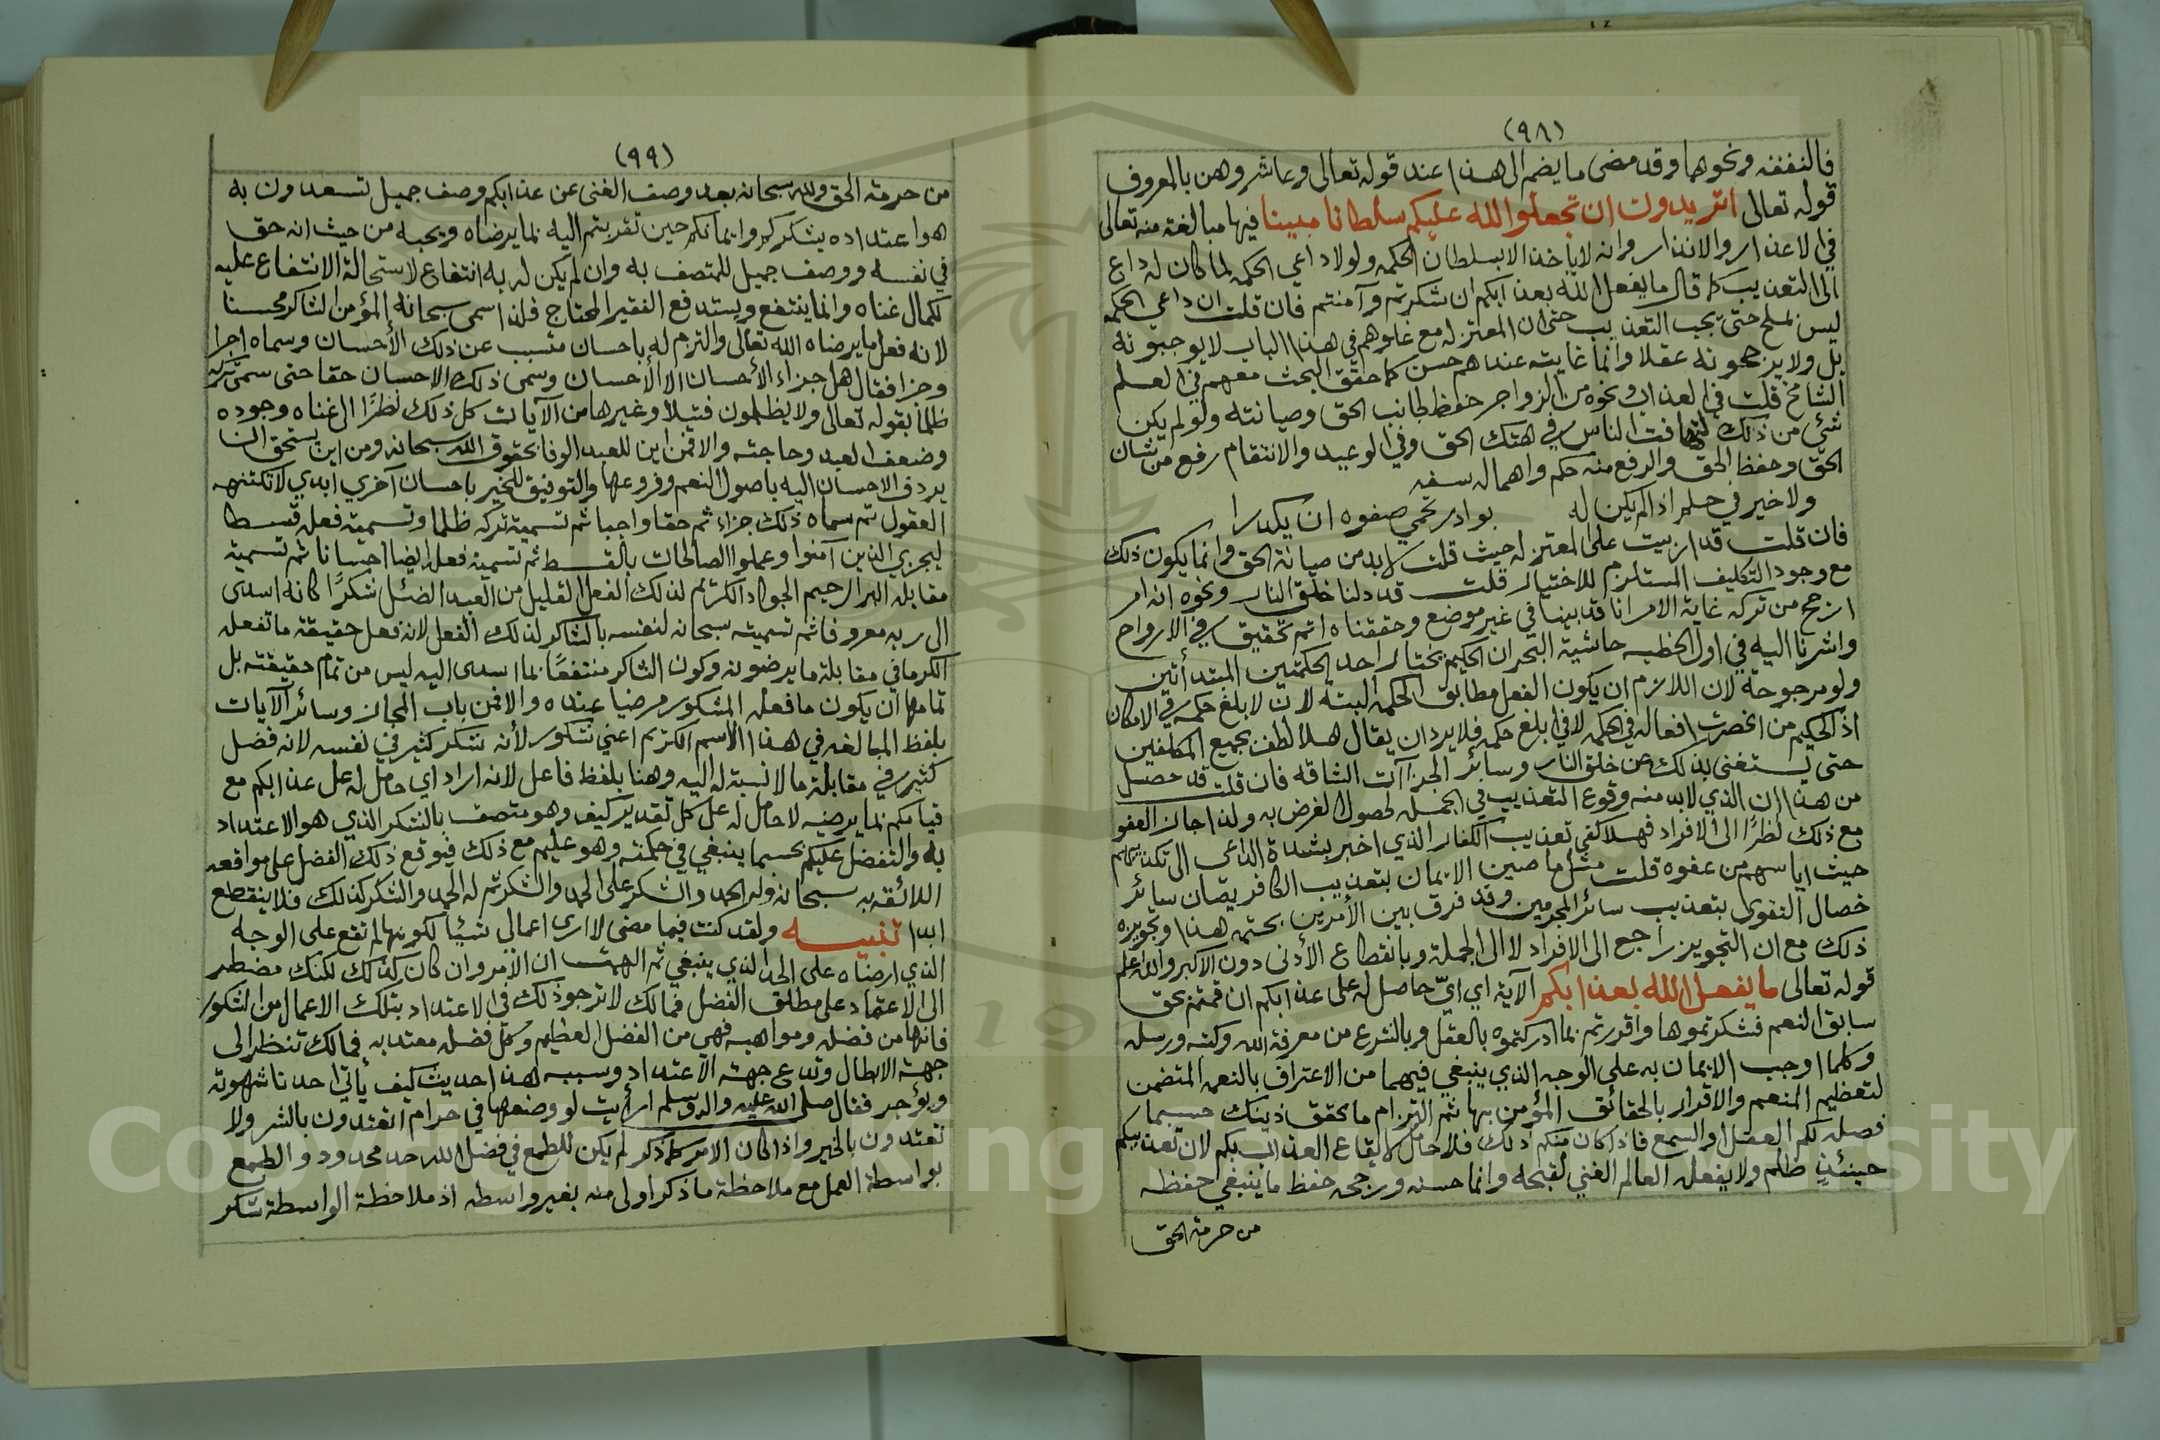 (٩٨)
فالنفقه ونحوها وقد مضى ما يضم الى هذا عند قوله تعالى وعاشروهن بالمعروف
قوله تعالى اتريدون ان تجعلوا الله عليكم سلطانا مبينا فيها مبالغة منه تعالى
في الاعذار والانذار وانه لا ياخذ الا بسلطان الحكمه ولولا داعي الحكمه لما كان له داع
الى التعذيب كما قال ما يفعل الله بعذابكم ان شكرتم وآمنتم فان قلت ان داعي الحكمه
ليس بملح حتى يجب التعذيب حتى ان المعتزله مع غلوهم في هذا الباب لا يوجبونه
بل ولا يرجحونه عقلا وانما غايته عندهم حسن كما حقق البحث معهم في العلم
الشامخ قلت في العذاب ونحوه من الزواجر حفظ لجانب الحق وصيانته ولو لم يكن
شئ من ذلك لتهافت الناس في هتك الحق وفي الوعيد والانتقام رفع من شان
الحق وحفظ الحق والرفع منه حكم واهماله سفه
ولا خير في حلم اذا لم يكن له بوادر تحمي صفوه ان يكدرا
فان قلت قد اربيت على المعتزله حيث قلت لابد من صيانة الحق وانما يكون ذلك
مع وجود التكليف المستلزم للاختيار قلت قد دلنا خلق النار ونحوه انه امر
ارجح من تركه غاية الامر انا قد بينا في غير موضع وحققناه اتم تحقيق في الارواح
واشرنا اليه في اول الخطبه حاشية البحر ان الحكيم يختار احد الحكمتين المبتدأتين
ولو مرجوحة لان اللازم ان يكون الفعل مطابق الحكمه البته لان لا بلغ حكمه في الامكان
اذ الحكيم من انحصرت افعاله في الحكمه لا في ابلغ حكمه فلا يرد ان يقال هلا لطف بجميع المكلفين
حتى يستغنى بذلك عن خلق النار وسائر الجزاآت الشاقه فان قلت قد حصل
من هذا ان الذي لابد منه وقوع التعذيب في الجمله لحصول الغرض به ولذا جاز العفو
مع ذلك نظرًا الى الافراد فهلا كفى تعذيب الكفار الذي اخبر بشدة الداعي الى
حيث اياسهم من عفوه قلت مثل ما صين الايمان بتعذيب الكافر يصان سائر
خصال التقوى بتعذيب سائر المجرمين وقد فرق بين الأمرين بحتمه هذا وتجويزه
ذلك مع ان التجويز راجع الى الافراد لا الى الجملة وبانقطاع الأدنى دون الاكبر والله اعلم
قوله تعالى ما يفعل الله بعذابكم الآية اي ايّ حاصل له على عذابكم ان قمتم بحق
سابق النعم فشكرتموها واقررتم بما ادركتموه بالعقل وبالشرع من معرفة الله وكتبه ورسله
وكلما اوجب الايمان به على الوجه الذي ينبغي فيهما من الاعتراف بالنعمه المتضمن
لتعظيم المنعم والاقرار بالحقائق المؤمن بها ثم التزام ما يحقق ذينك حسبما
فصله لكم العقل او السمع فاذا كان منكم ذلك فلا حامل لايقاع العذاب بكم لان تعذيبكم
حينئذٍ ظلم ولا يفعله العالم الغني لقبحه وانما حسنه ورجحه حفظ ما ينبغي حفظه
من حرمة الحق
(٩٩)
من حرمة الحق ولله سبحانه بعد وصف الغنى عن عذابكم وصف جميل تسعدون به
هو اعتداده بشكركم وايمانكم حين تقربتم اليه بما يرضاه ويحبه من حيث انه حق
في نفسه ووصف جميل للمتصف به وان لم يكن له به انتفاع لاستحالة الانتفاع عليه
لكمال غناه وانما ينتفع ويستدفع الفقير المحتاج فلذا سمى سبحانه المؤمن الشاكر محسنا
لانه فعل ما يرضاه الله تعالى والتزم له باحسان متسبب عن ذلك الأحسان وسماه اجرا
وجزا فقال هل جزاء الأحسان الا الأحسان وسمى ذلك الاحسان حقا حتى سمى تركه
ظلمًا بقوله تعالى ولا يظلمون فتيلا وغيرها من الآيات كل ذلك نظرًا الى غناه وجوده
وضعف العبد وحاجته والا فمن اين للعبد الوفا بحقوق الله سبحانه ومن اين يستحق ان
يردف الاحسان اليه باصول النعم وفروعها والتوفيق للخير باحسان آخري ابدي لا تكتنهه
العقول ثم سماه ذلك جزاء ثم حقا واجبا ثم تسمية تركه ظلما وتسمية فعله قسطا
ليجزي الذين آمنوا وعملوا الصالحات بالقسط ثم تسمية فعله ايضا احسانا ثم تسمية
مقابلة البر الرحيم الجواد الكريم لذلك الفعل القليل من العبد الضئيل شكرًا كانه اسدى
الى ربه معروفا ثم تسميته سبحانه لنفسه بالشاكر لذلك الفعل لانه فعل حقيقة ما تفعله
الكرما في مقابلة ما يرضونه وكون الشاكر منتفعًا بما اسدى اليه ليس من تمام حقيقته بل
تمامها ان يكون ما فعله المشكور مرضيا عنده والا فمن باب المجاز وسائر الآيات
بلفظ المبالغه في هذا الأسم الكريم اعني شكور لأنه شكر كثير في نفسه لانه فضل
كثير في مقابلة ما لا نسبة له اليه وهنا بلفظ فاعل لانه اراد اي حامل له على عذابكم مع
قيامكم بما يرضيه لا حامل له على كل تقدير كيف وهو متصف بالشكر الذي هو الاعتداد
به والتفضل عليكم بحسبما ينبغي في حكمته وهو عليم مع ذلك فيوقع ذلك الفضل على مواقعه
اللائقه به سبحانه وله الحمد والشكر على الحمد والشكر ثم له الحمد والشكر كذلك فلا ينقطع
ابدا تنبيه ولقد كنت فيما مضى لا ارى اعمالي شيئا لكونها لم تقع على الوجه
الذي ارضاه على الحد الذي ينبغي ثم الهمت ان الأمر وان كان كذلك لكنك مضطر
الى الاعتماد على مطلق الفضل فمالك لا ترجو ذلك في الاعتداد بتلك الاعمال من الشكور
فانها من فضله ومواهبه فهي من الفضل العظيم وكل فضله معتد به فمالك تنظر الى
جهة الابطال وتدع جهة الاعتداد وسببه لهذا حديث كيف يأتي احدنا شهوته
ويؤجر فقال صلى الله عليه واله وسلم ارأيت لو وضعها في حرام اتعتدون بالشر ولا
تعتدون بالخير واذا كان الامر كما ذكر لم يكن للطمع في فضل الله حد محدود والطمع
بواسطة العمل مع ملاحظة ما ذكر اولى منه بغير واسطه اذ ملاحظة الواسطة شكر
Copyright © King Saud University